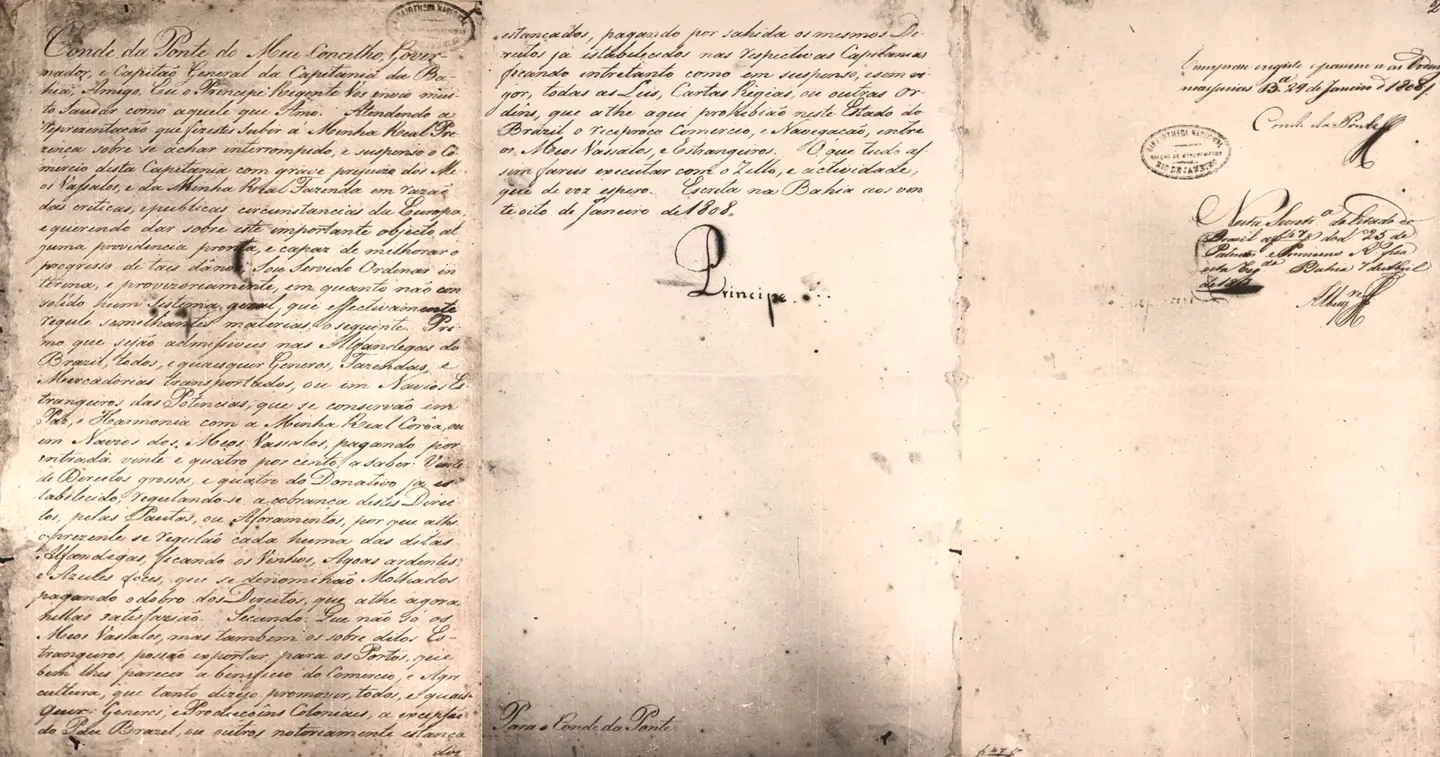 BIBLIOTHECA NACIONAL
Conde da Ponte do Meu Concelho, Gover-
nador, e Capitão General da Capitania da Ba-
hia, Amigo. Eu o Principe Regente vos envio mui-
to Saudar como aquele que Amo. Atendendo a
representacao que fizestes subir á Minha Real Pre-
zença sobre se achar interrompido, e suspenso o Co-
mercio desta Capitania com grave prejuizo dos Me-
os Vassalos, e da Minha Real Fazenda em razaõ
das criticas, e publicas circunstancias da Europa,
e querendo dar sobre este importante objecto al
guma providencia pronta, e capaz de melhorar o
progresso de tais dános: Sou Servido Ordenar in
terina, e provizoriamente, em quanto não con
solido hum sistema geral, que effectivamente
regule semelhantes materias, o seguinte. Pri
mo que sejão admissiveis nas Alfandegas do
Brazil, todos, e quaesquer Generos, Fazendas, e
Mercadorias transportados, ou em Navios Es-
trangeiros das Potencias, que se conservão em
Paz, e Harmonia com a Minha Real Corôa, ou
em Navios dos, Meos Vassalos, pagando por
entrada vinte e quatro por cento, a saber: Vinte
de Direitos grossos, e quatro do Donativo ja es-
tabelecido, regulando-se a cobrança destes Direi
tos, pelas Pautas, ou Aforamentos, por que athe
o prezente se regulão cada huma das ditas
Alfandegas, ficando os Vinhos, Agoas ardentes,
e Azeites doces, que se denominão Molhados
pagando o dobro dos Direitos, que athe agora
nellas satisfazião. Secundo: Que não só os
Meos Vassalos, mas tambem os sobre ditos Es-
trangeiros, possão exportar para os Portos, que
bem lhes parecer a beneficio do Comercio, e Agri
cultura, que tanto dezejo promover, todos, e quais-
quer: Generos, e Producçoins Coloniais, a excepsão
do Páu Brazil, ou outros notoriamente estanca
dos
estancados, pagando por sahida os mesmos Di
reitos ja estabelecidos nas respectivas Capitanias
ficando entretanto como em suspenso, e sem vi
gor, todas as Leis, Cartas Regias, ou outras Or
dins, que athe aqui prohibião neste Estado do
Brazil o reciproco Comercio, e Navegação, entre
os Meos Vassalos, e Estrangeiros. O que tudo as
sim fareis executar com o Zello, e actividade,
que de voz espero. Escrita na Bahia aos vin
te oito de Janeiro de 1808.
Principe
Para o Conde da Ponte
Cumprase registe e passem as
B.ª 29 de Janeiro d 1808
Conde da Ponte
BIBLIOTHECA NACIONAL
SECÇÃO DE MANUSCRIPTOS
RIO DE JANEIRO
Bahia